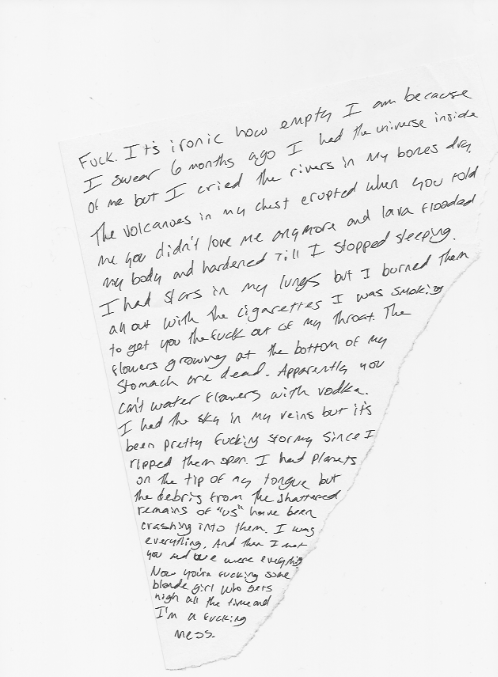 Fuck. It's ironic how empty I am because
I swear 6 months ago I had the universe inside
of me but I cried the rivers in my bones dry.
The volcanoes in my chest erupted when you told
me you didn't love me anymore and lava flooded
my body and hardened till I stopped sleeping.
I had stars in my lungs but I burned them
all out with the cigarettes I was smoking
to get you the fuck out of my throat. The
flowers growing at the bottom of my
stomach are dead. Apparently you
can't water flowers with vodka.
I had the sky in my veins but it's
been pretty fucking stormy since I
ripped them open. I had planets
on the tip of my tongue but
the debris from the shattered
remains of "us" have been
crashing into them. I was
everything. And then I met
you and we were everything
Now you're fucking some
blonde girl who gets
high all the time and
I'm a fucking
mess.